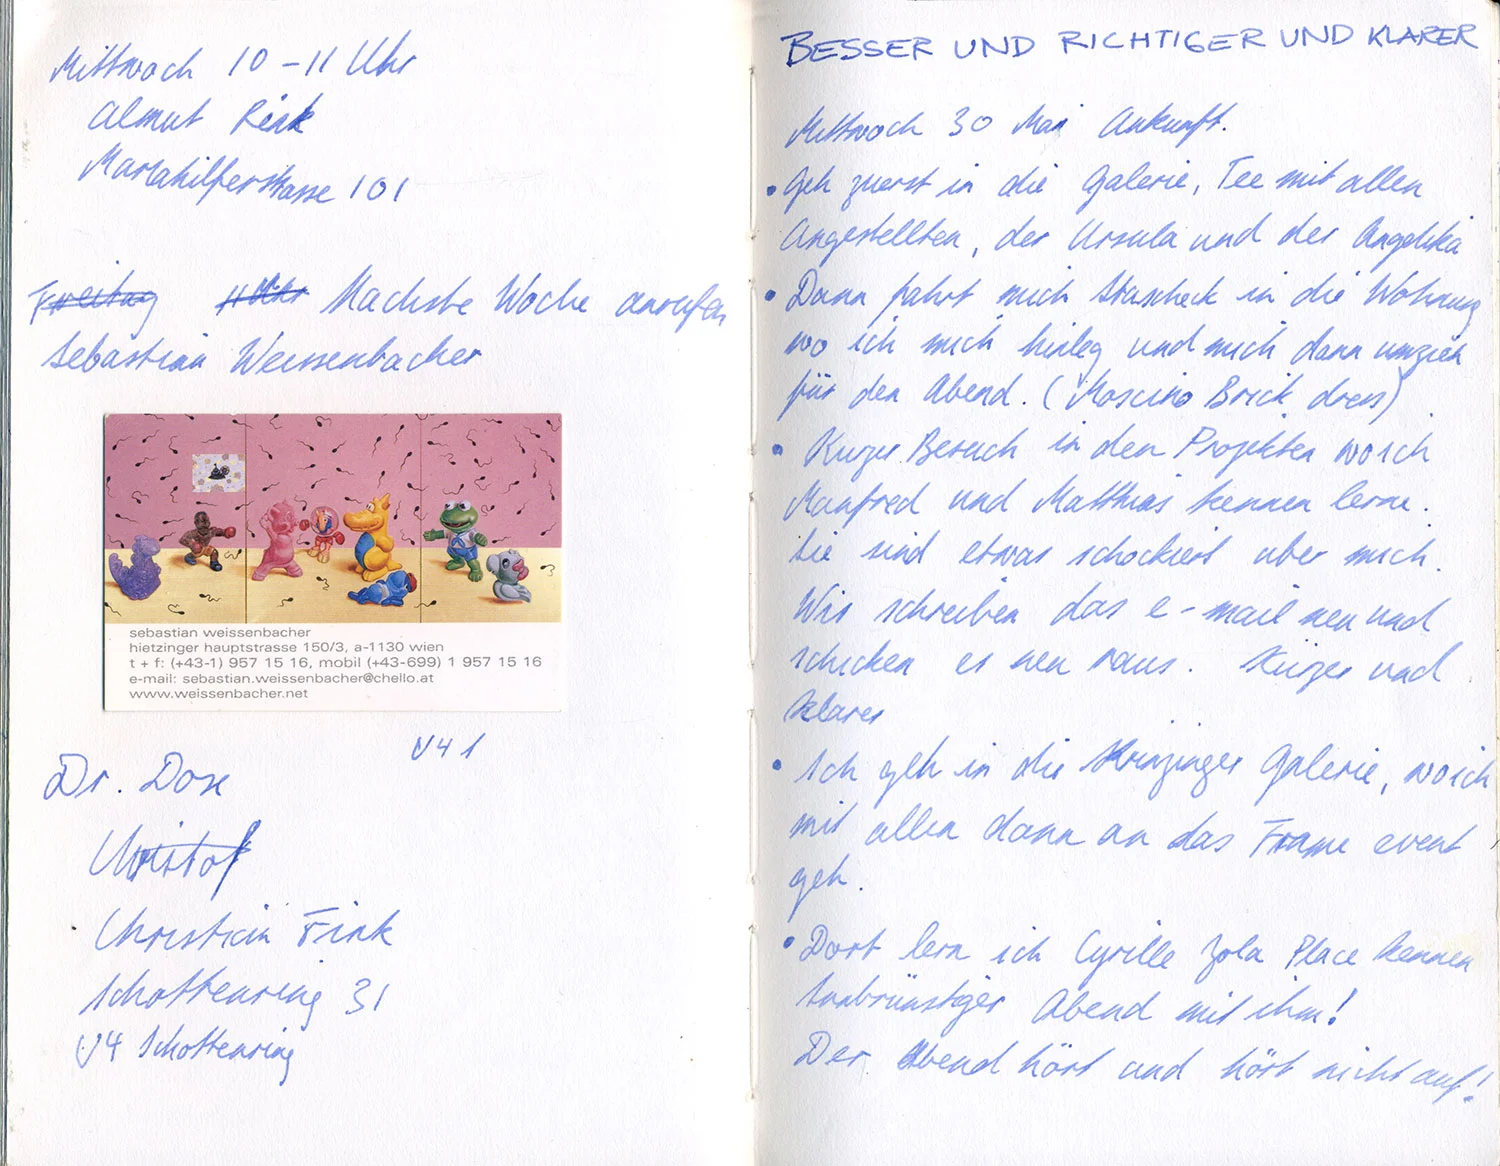 Mittwoch 10 - 11 Uhr
Almut Rink
Mariahilferstrasse 101
Freitag 11 Uhr Nächste Woche anrufen
Sebastian Weissenbacher
sebastian weissenbacher
hietzinger hauptstrasse 150/3, a-1130 wien
t + f: (+43-1) 957 15 16, mobil (+43-699) 1 957 15 16
e-mail: sebastian.weissenbacher@chello.at
www.weissenbacher.net
U4 1
Dr. Dox
Christof
Christian Fink
Schottenring 31
U4 Schottenring
BESSER UND RICHTIGER UND KLARER
Mittwoch 30 Mai Ankunft.
• Geh zuerst in die Galerie, Tee mit allen
Angestellten, der Ursula und der Angelika
• Dann fahrt mich Strascheck in die Wohnung
wo ich mich hinleg und mich dann umzieh
für den Abend. (Moscino Brick dress)
• Kurzer Besuch in den Projekten wo ich
Manfred und Matthias kennen lerne.
Sie sind etwas schockiert über mich.
Wir schreiben das e-mail neu und
schicken es neu raus. Kürzer und
klarer
• Ich geh in die Krinzinger Galerie, wo ich
mit allen dann an das Frame event
geh.
• Dort lern ich Cyrille Zola Place kennen
Inbrünstiger Abend mit ihm!
Der Abend hört und hört nicht auf!